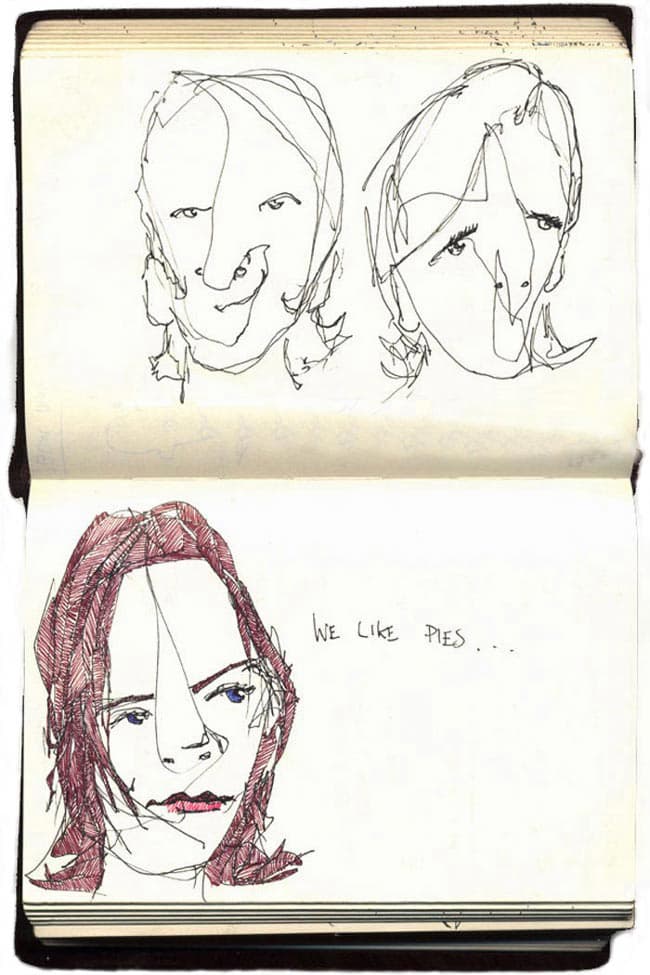 WE LIKE PIES...